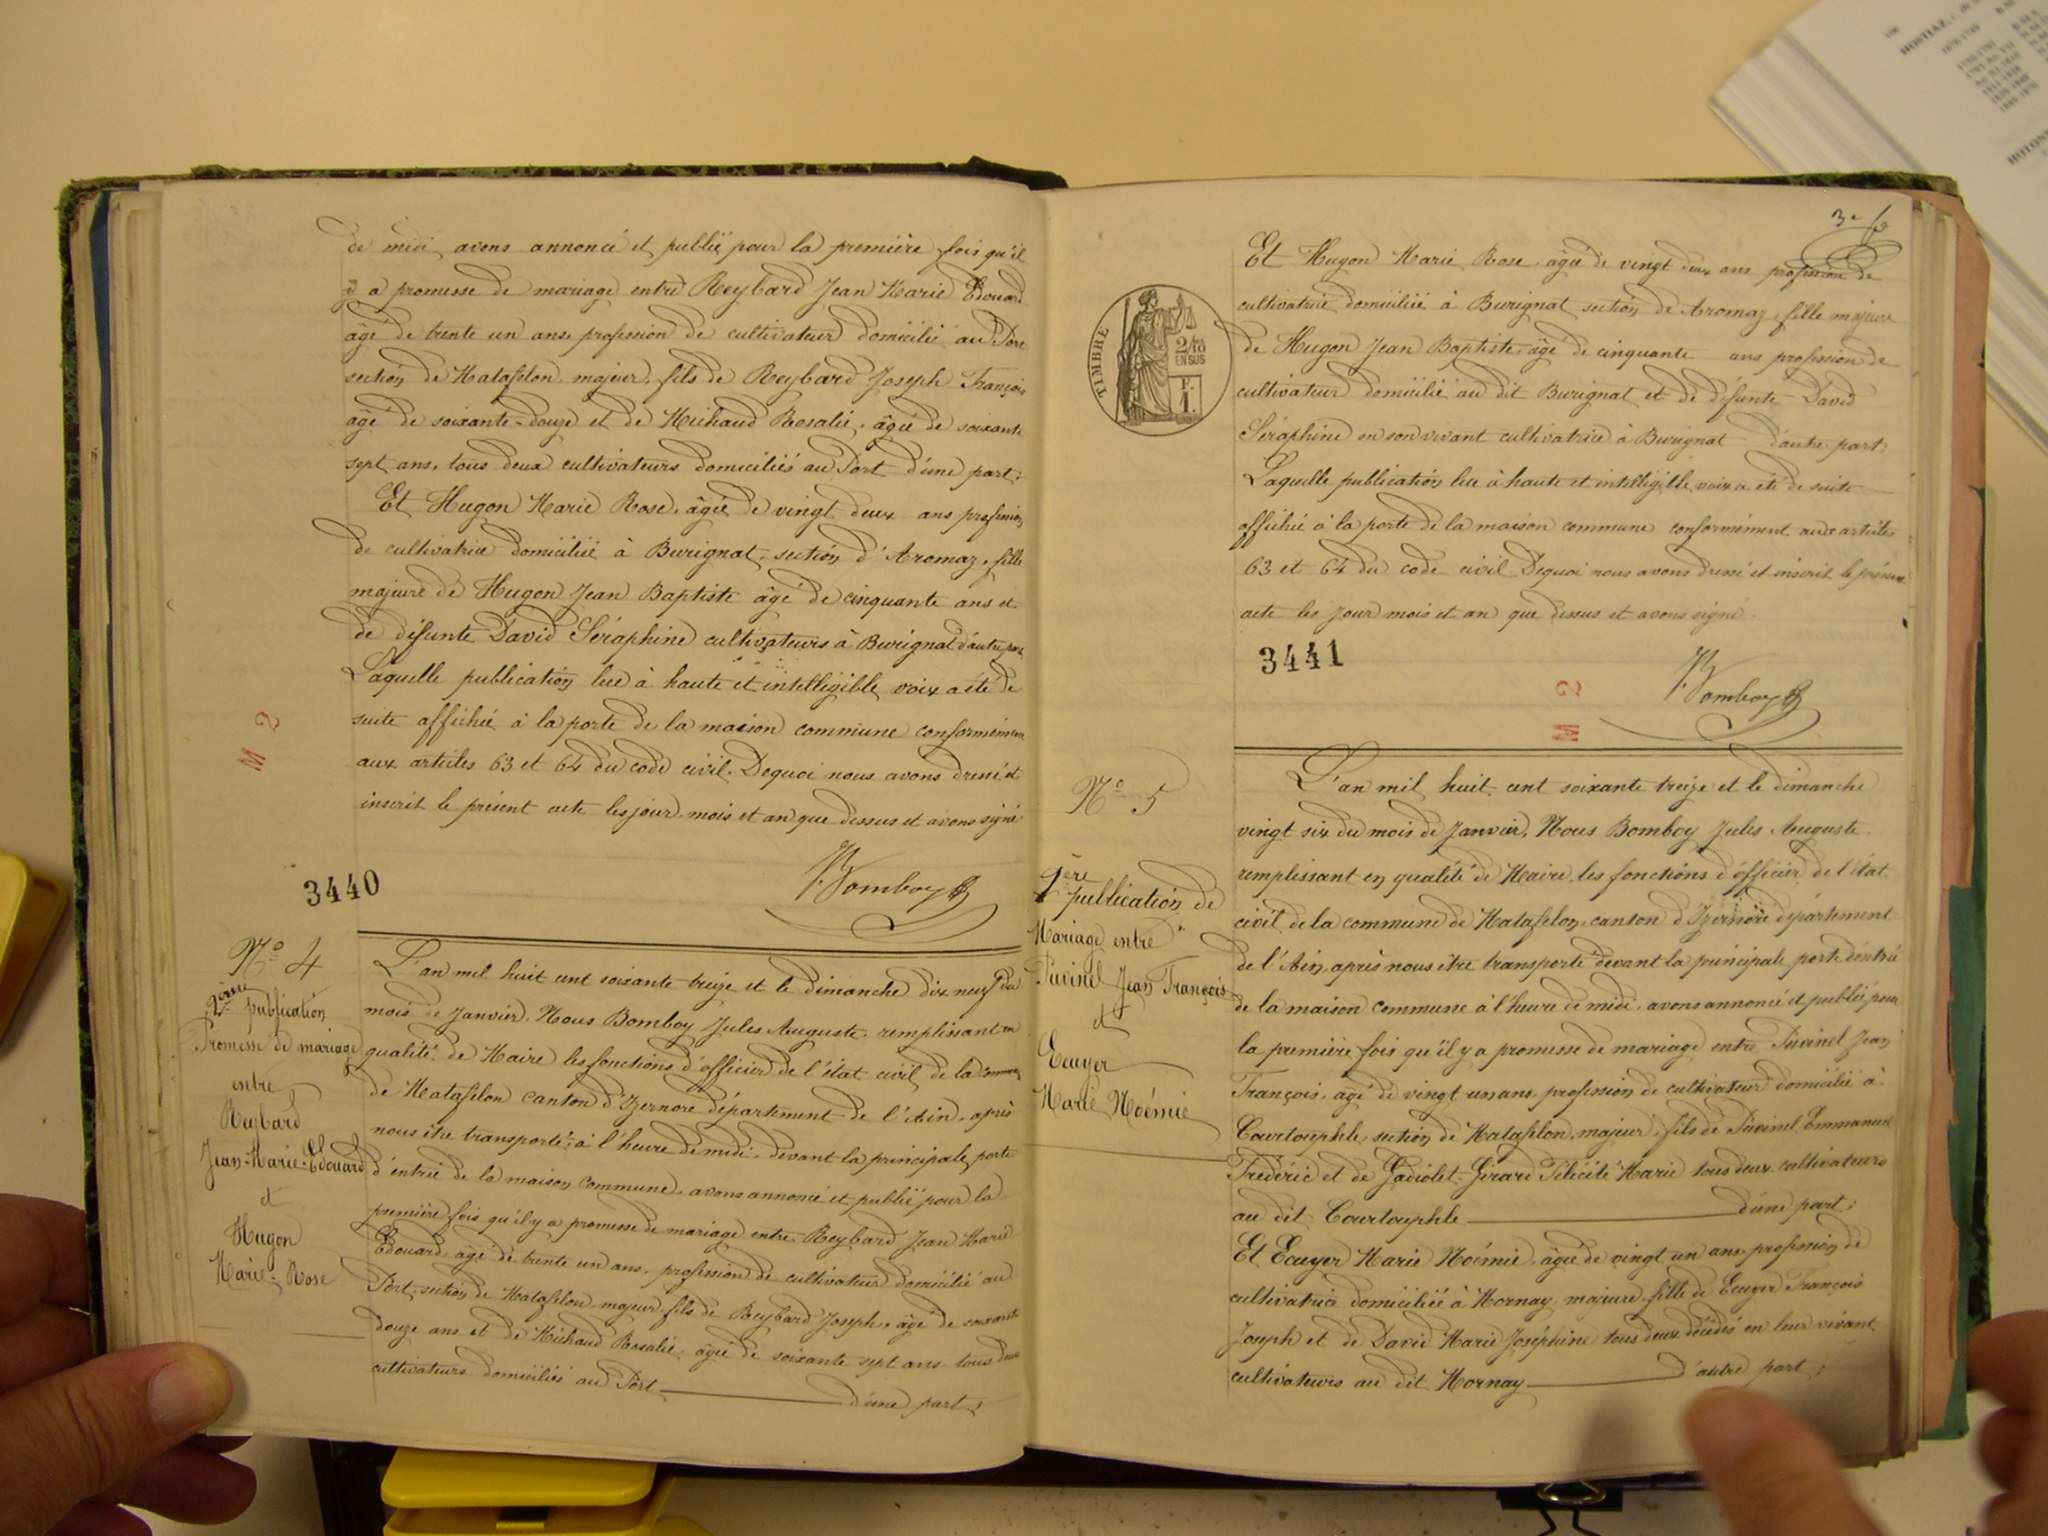 de midi avons annoncé et publié pour la première fois qu'il
y a promesse de mariage entre Reybard Jean Marie Edouard
âgé de trente un ans, profession de cultivateur domicilié au Port
section de Matafelon, majeur, fils de Reybard Joseph François
âgé de soixante-douze et de Michaud Rosalie, âgée de soixante
sept ans, tous deux cultivateurs domiciliés au Port d'une part;
Et Hugon Marie Rose, âgée de vingt deux ans profession
de cultivatrice domiciliée à Burignat, section d'Aromaz, fille
majeure de Hugon Jean Baptiste âgé de cinquante ans et
de défunte David Séraphine cultivateurs à Burignat d'autre part
Laquelle publication lue à haute et intelligible voix a été de
suite affichée à la porte de la maison commune conformément
aux articles 63 et 64 du code civil. Dequoi nous avons dressé et
inscrit le présent acte les jour, mois et an que dessus et avons signé
M 2
Bomboy
3440
N° 4
2ème publication
Promesse de mariage
entre
Reybard
Jean-Marie-Edouard
et
Hugon
Marie-Rose
L'an mil huit cent soixante treize et le dimanche dix neuf du
mois de Janvier, Nous Bomboy Jules Auguste, remplissant en
qualité de Maire les fonctions d'officier de l'état civil de la commune
de Matafelon canton d'Izernore département de l'Ain, après
nous être transporté, à l'heure de midi, devant la principale porte
d'entrée de la maison commune, avons annoncé et publié pour la
première fois qu'il y a promesse de mariage entre Reybard Jean Marie
Edouard âgé de trente un ans, profession de cultivateur domicilié au
Port, section de Matafelon, majeur, fils de Reybard Joseph, âgé de soixante
douze ans et de Michaud Rosalie, âgée de soixante sept ans tous deux
cultivateurs domiciliés au Port d'une part;
3e f
TIMBRE
2/10
EN SUS
1F.
Et Hugon Marie Rose, âgée de vingt deux ans profession de
cultivatrice domiciliée à Burignat section de Aromaz, fille majeure
de Hugon Jean Baptiste, âgé de cinquante ans profession de
cultivateur domicilié au dit Burignat et de défunte David
Séraphine en son vivant cultivatrice à Burignat d'autre part:
Laquelle publication lue à haute et intelligible voix a été de suite
affichée à la porte de la maison commune conformément aux articles
63 et 64 du code civil Dequoi nous avons dressé et inscrit le présent
acte les jour mois et an que dessus et avons signé.
3441
M 2
Bomboy
N° 5
1ère
publication de
Mariage entre
Puvinel Jean François
et
Ecuyer
Marie Noémie
L'an mil huit cent soixante treize et le dimanche
vingt six du mois de Janvier, Nous Bomboy Jules Auguste
remplissant en qualité de Maire, les fonctions d'officier de l'état
civil de la commune de Matafelon, canton d'Izernore département
de l'Ain, après nous être transporté devant la principale porte d'entrée
de la maison commune à l'heure de midi, avons annoncé et publié pour
la première fois qu'il y a promesse de mariage entre Puvinel Jean
François, âgé de vingt un ans, profession de cultivateur domicilié à
Courtouphle, section de Matafelon, majeur, fils de Puvinel Emmanuel
Frédéric et de Gadiolet-Girard Félicité Marie tous deux cultivateurs
au dit Courtouphle d'une part;
Et Ecuyer Marie Noémie, âgée de vingt un ans, profession de
cultivatrice domiciliée à Mornay, majeure, fille de Ecuyer François
Joseph et de David Marie Joséphine tous deux décédés en leur vivant
cultivateurs au dit Mornay d'autre part;
HOSTIAZ